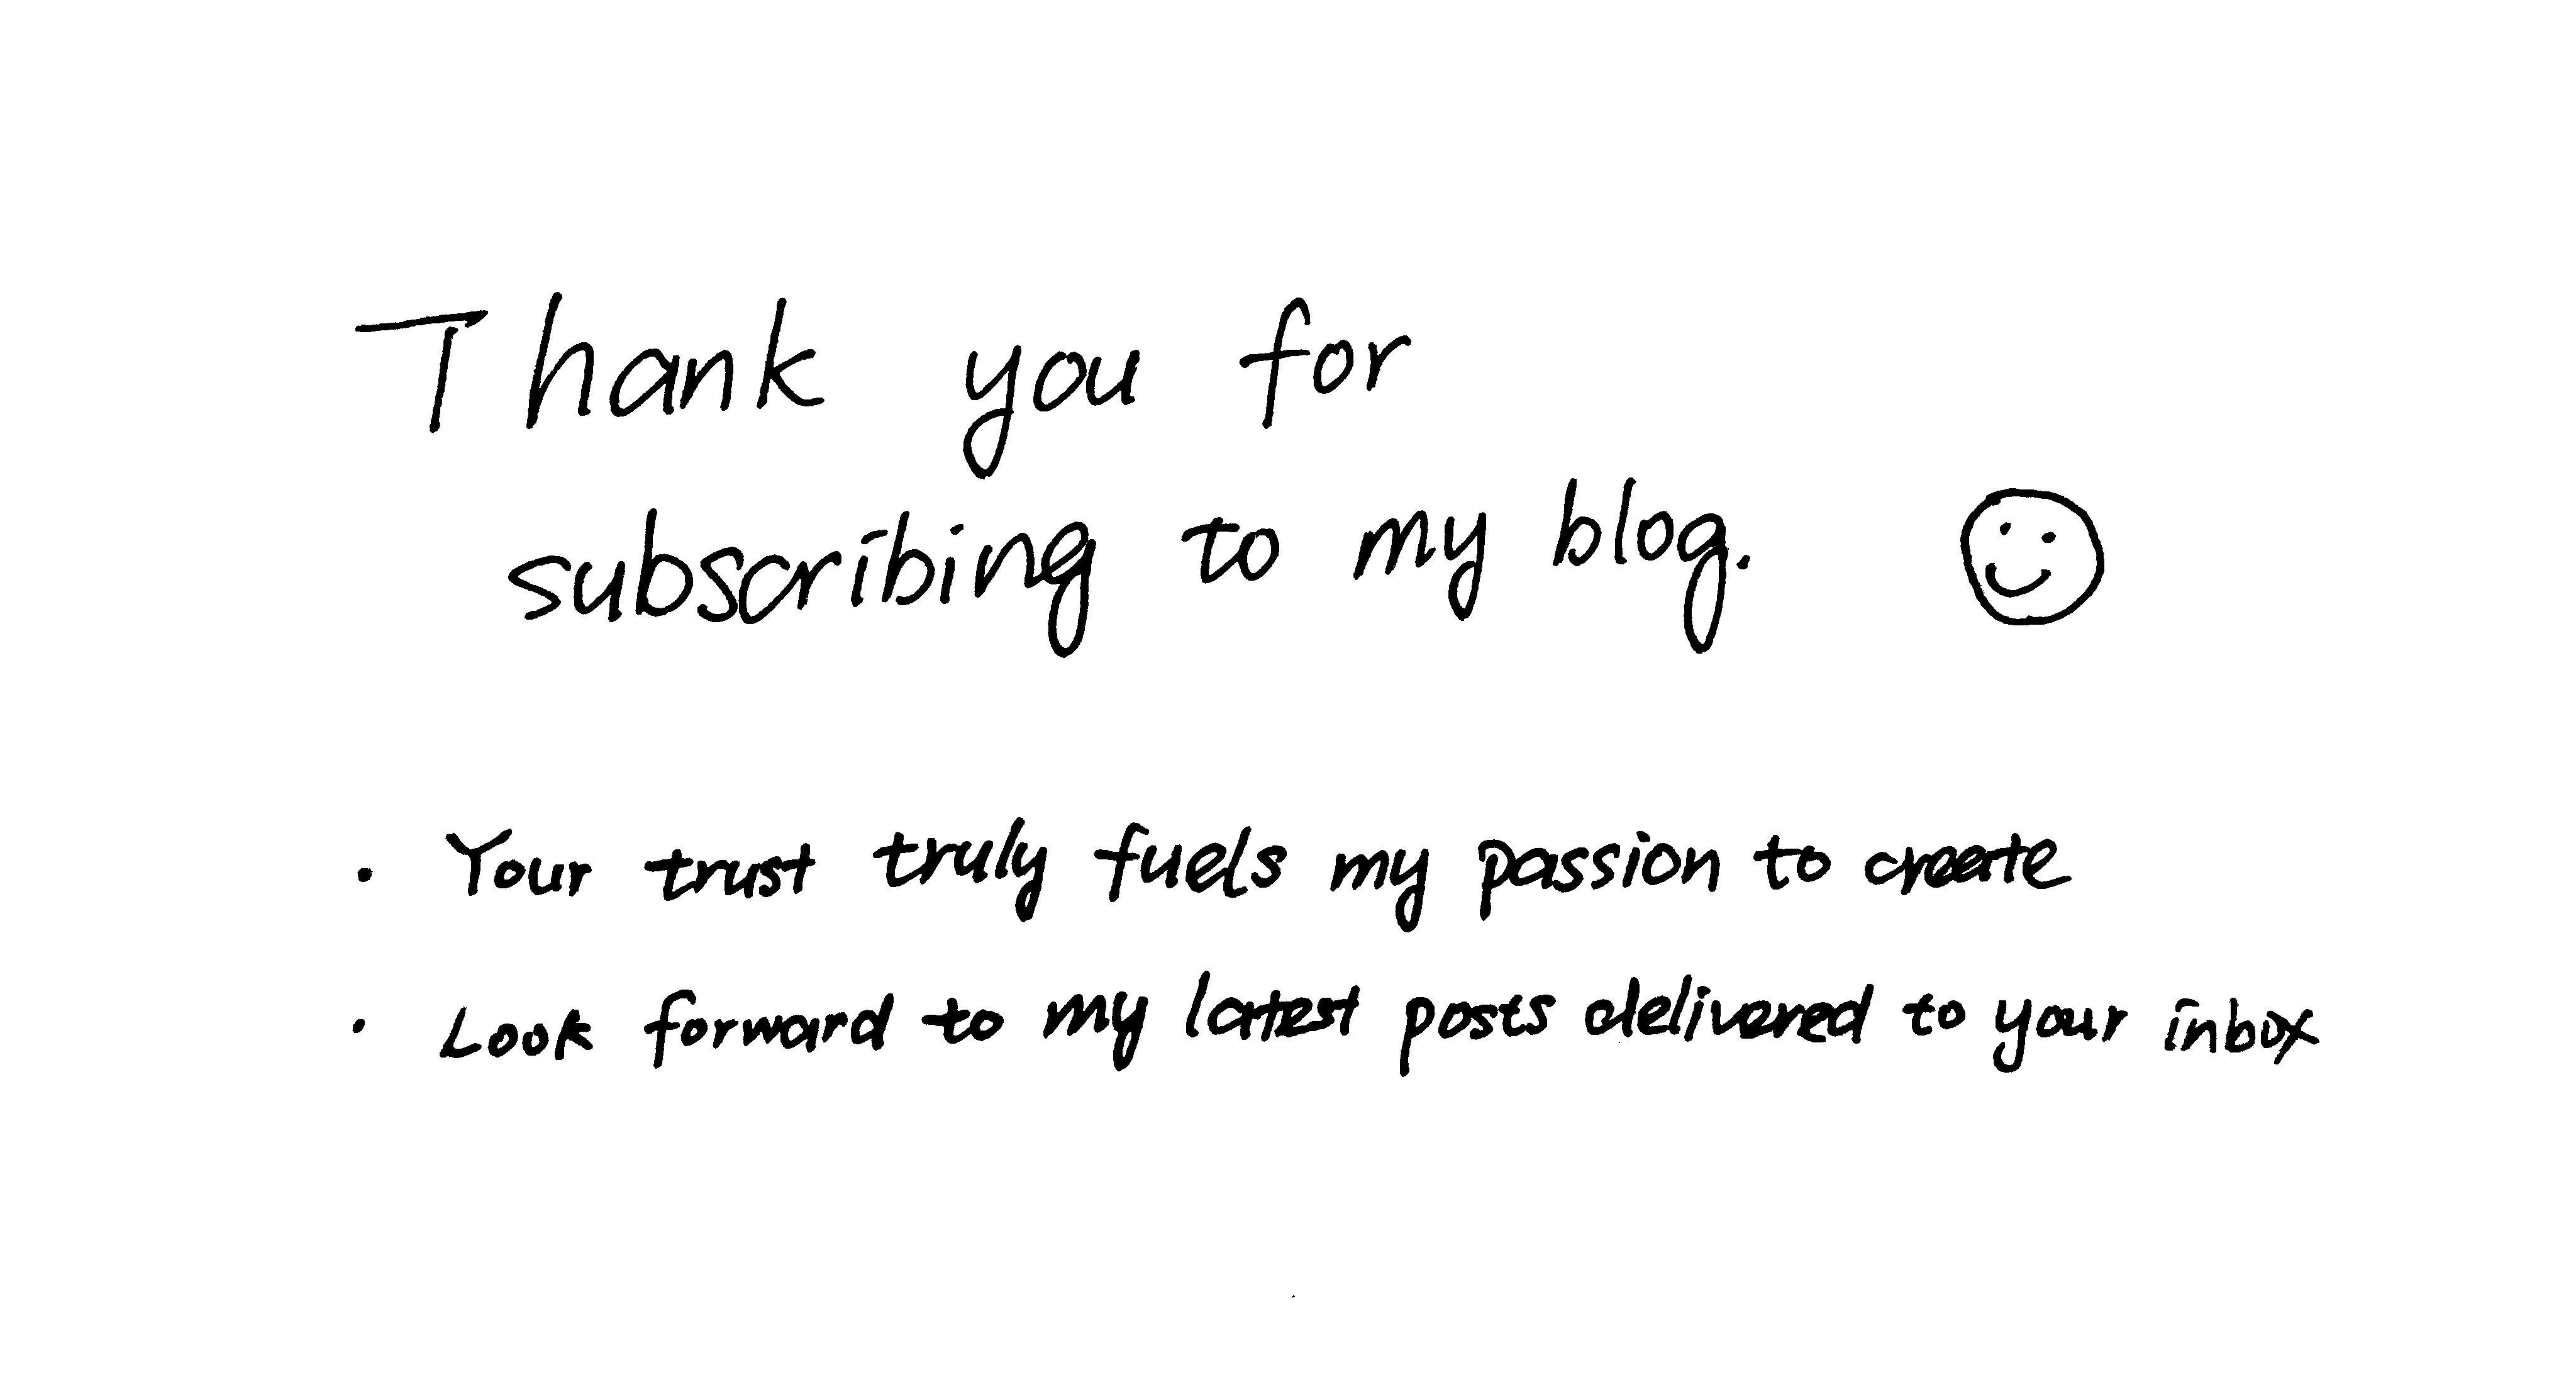 Thank you for
subscribing to my blog.
· Your trust truly fuels my passion to create
· Look forward to my latest posts delivered to your inbox